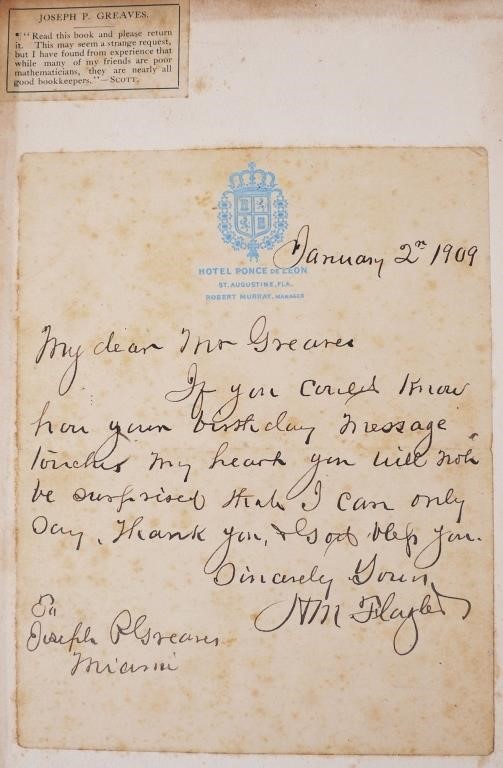 JOSEPH P. GREAVES.
¶"Read this book and please return
it. This may seem a strange request,
but I have found from experience that
while many of my friends are poor
mathematicians, they are nearly all
good bookkeepers."—SCOTT.
HOTEL PONCE DE LEON
ST. AUGUSTINE, FLA.
ROBERT MURRAY, MANAGER
January 2nd 1909
My dear Mr Greaves
If you could know
how your birthday message
touches my heart you will not
be surprised that I can only
say, thank you, & God bless you.
Sincerely Yours
HM Flagler
To
Joseph P Greaves
Miami